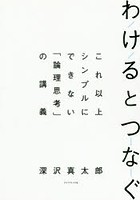 わけるとつなぐ
これ以上
シンプルに
できない
「論理思考」
の講義
深沢真太郎